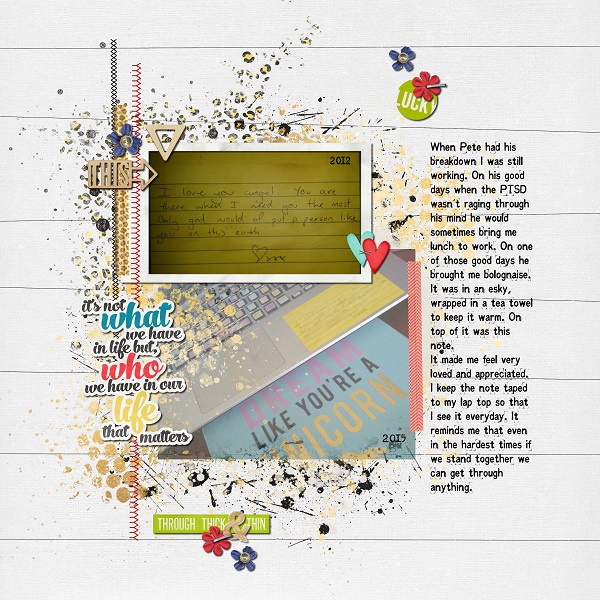 LUCKY
THIS
2012
I love you angel. You are
there when I need you the most.
Only god would of put a person like
you on this earth
xxx
it's not
what
we have
in life but,
who
we have in our
life
that matters
DREAM
LIKE YOU'RE A
UNICORN
2015
THROUGH THICK & THIN
When Pete had his
breakdown I was still
working. On his good
days when the PTSD
wasn't raging through
his mind he would
sometimes bring me
lunch to work. On one
of those good days he
brought me bolognaise.
It was in an esky,
wrapped in a tea towel
to keep it warm. On
top of it was this
note.
It made me feel very
loved and appreciated.
I keep the note taped
to my lap top so that
I see it everyday. It
reminds me that even
in the hardest times if
we stand together we
can get through
anything.